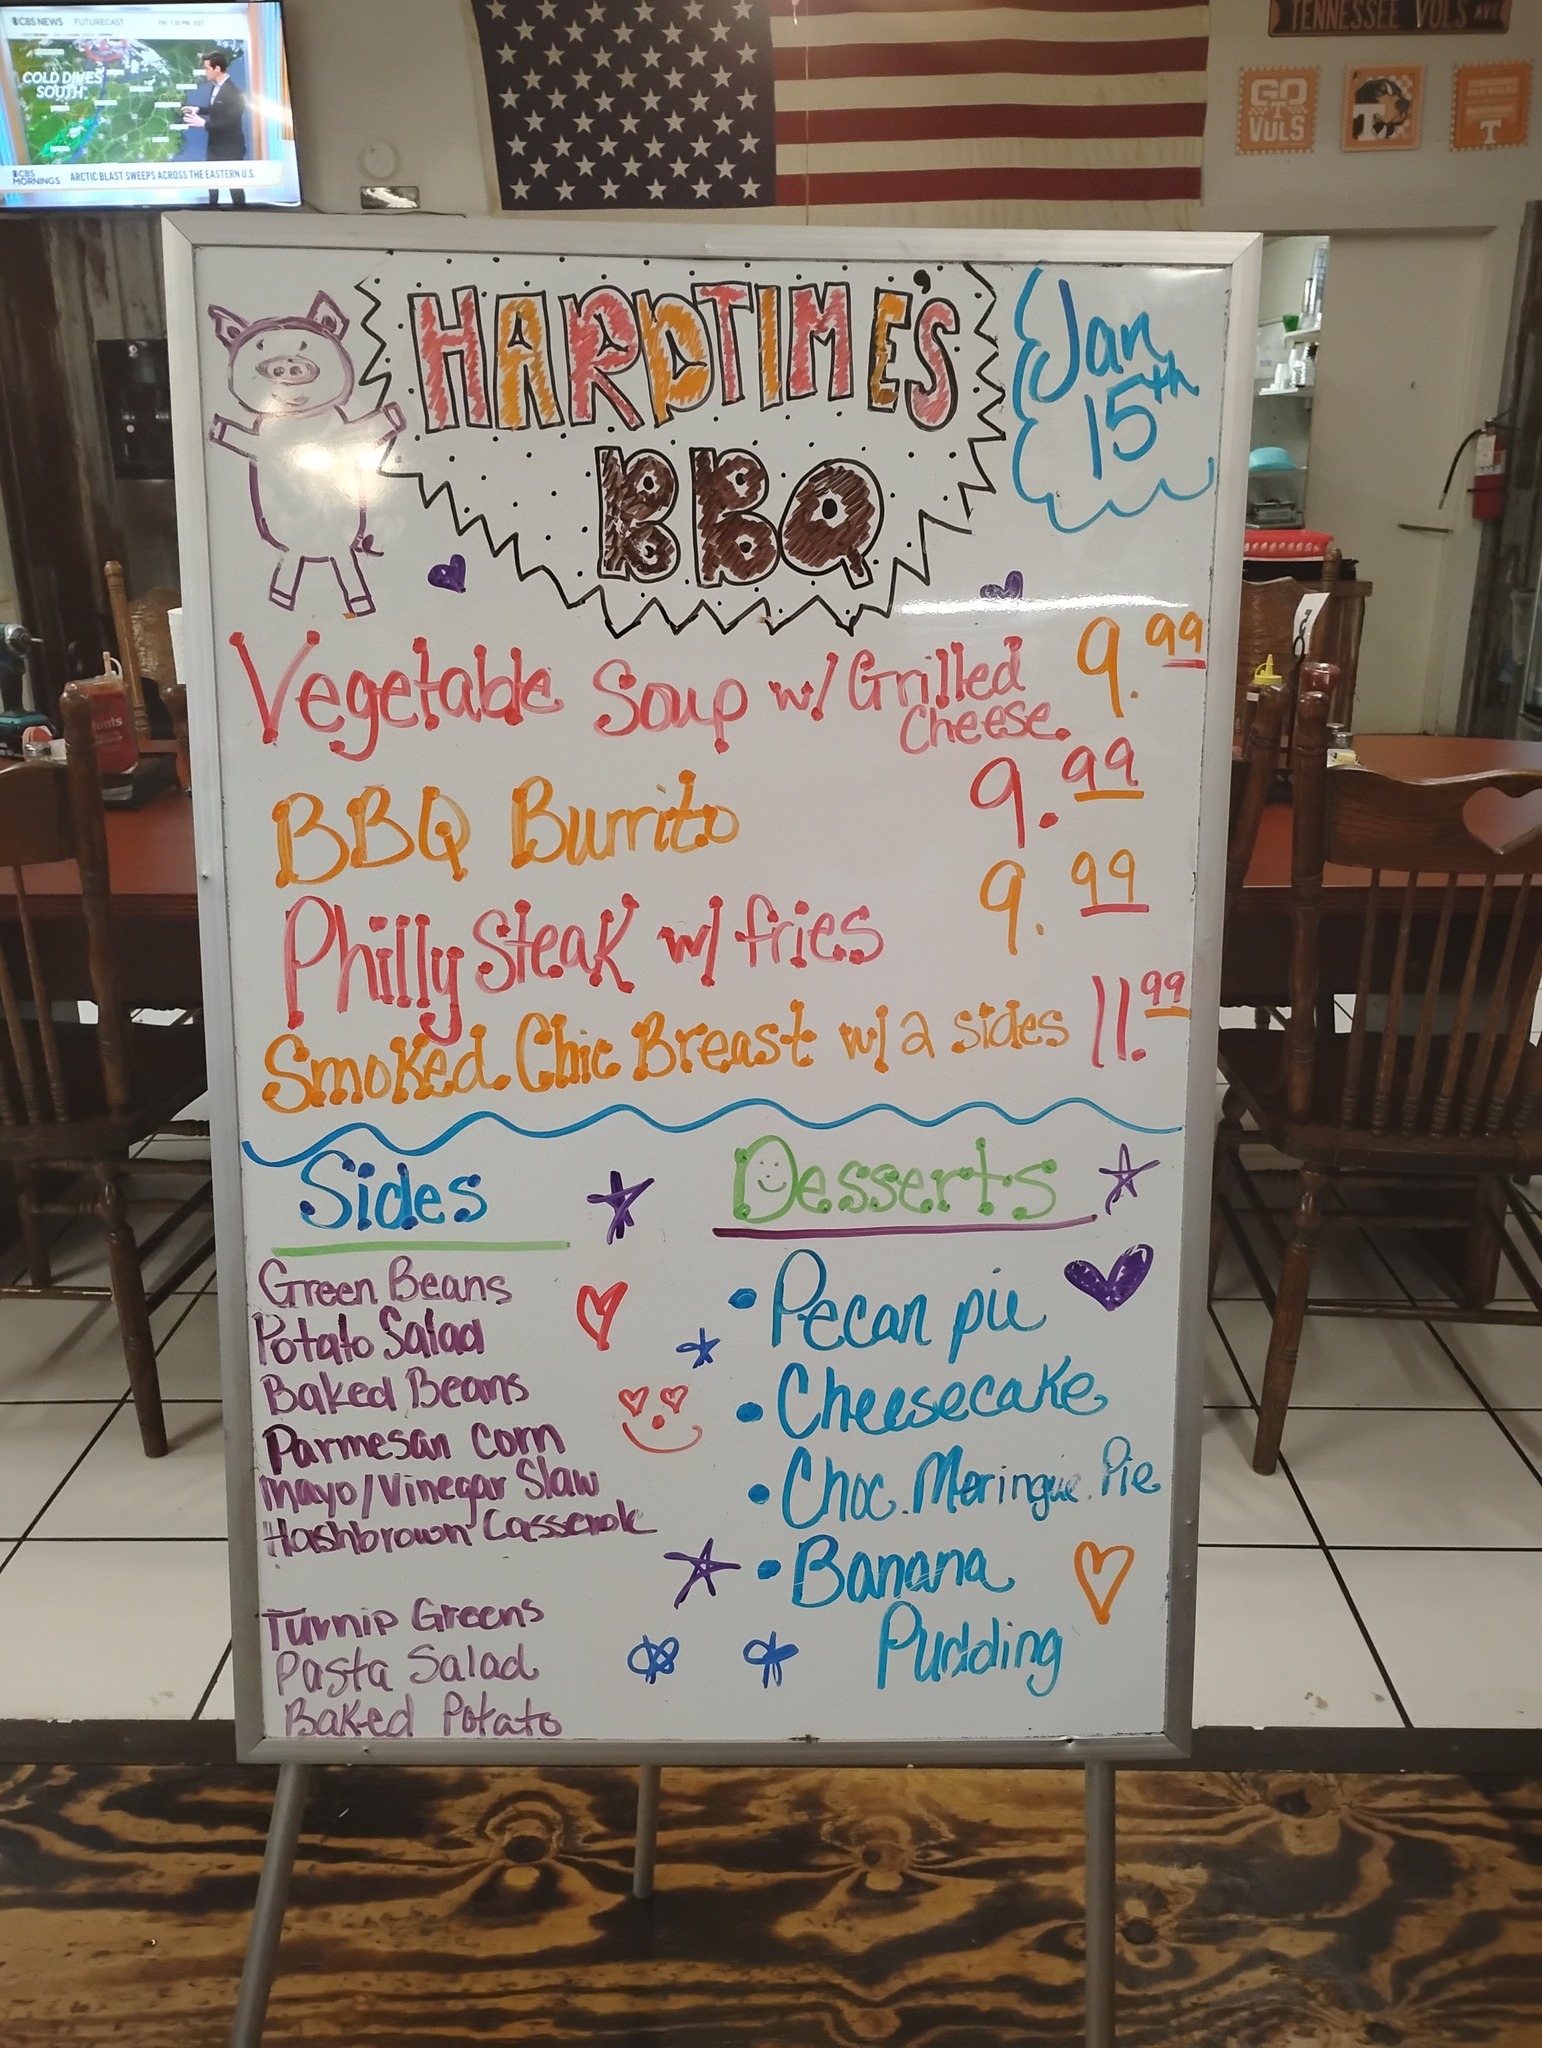 CBS NEWS FUTURECAST
COLD DIVES
SOUTH
CBS
MORNINGS ARCTIC BLAST SWEEPS ACROSS THE EASTERN U.S.
TENNESSEE VOLS AVE
GO
VOLS
T
T
HARDTIME'S
BBQ
Jan
15th
Vegetable Soup w/ Grilled
Cheese 9.99
BBQ Burrito 9.99
Philly Steak w/ fries 9.99
Smoked Chic Breast w/ 2 sides 11.99
Sides
Green Beans
Potato Salad
Baked Beans
Parmesan Corn
Mayo/Vinegar Slaw
Hashbrown Casserole
Turnip Greens
Pasta Salad
Baked Potato
Desserts
• Pecan pie
• Cheesecake
• Choc. Meringue Pie
• Banana
Pudding